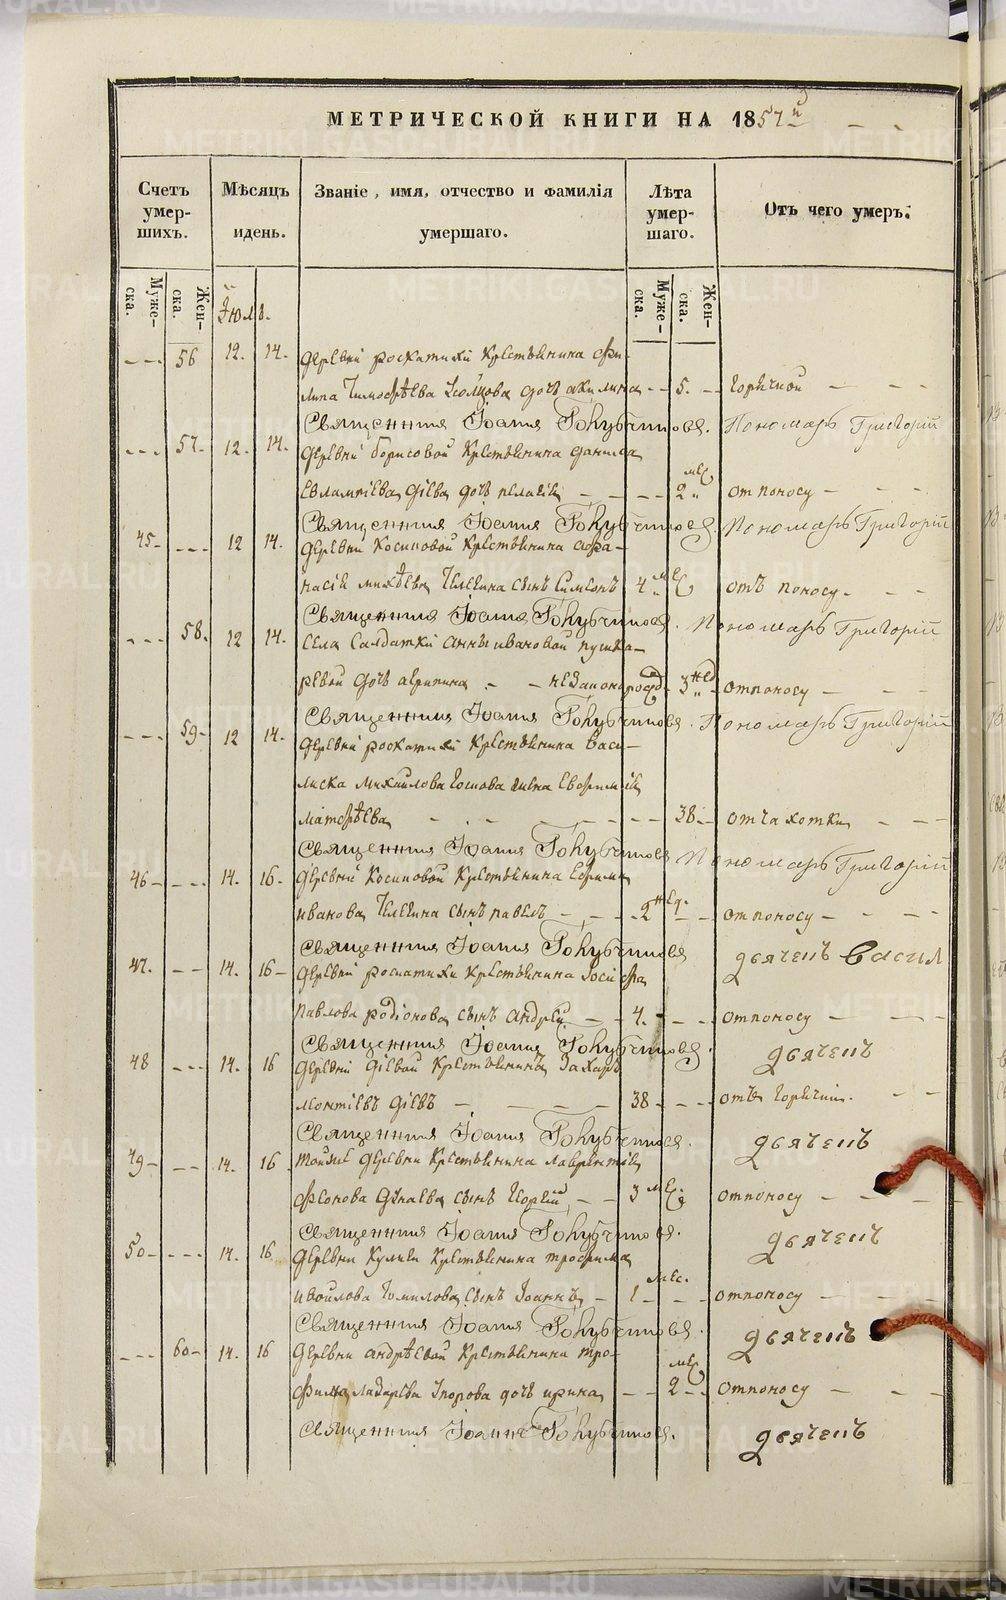 МЕТРИЧЕСКОЙ КНИГИ НА 1857й
Счетъ умер-шихъ.
Мѣсяцъ и день.
Званіе, имя, отчество и фамилія умершаго.
Лѣта умер-шаго.
Отъ чего умеръ.
Муже-ска.
Жен-ска.
Муже-ска.
Жен-ска.
Іюль.
56 12. 14. деревни роскатихи крестьянина фи-
липа Тимофѣева дочь акилина 5. горячкой
Священникъ Іоаннъ Голубчиковъ. Пономарь Григорій
57. 12. 14. деревни борисовой крестьянина данила
Евлампіева діева дочь пелагія 2 мес отпоносу
Священникъ Іоаннъ Голубчиковъ. Пономарь Григорій
45 12 14. деревни Косиковой крестьянина афа-
насія михѣева Телегина сынъ Симеонъ 4 мес отъ поносу
Священникъ Іоаннъ Голубчиковъ. Пономарь Григорій
58. 12 14. села Салдатки анны ивановой пушка-
ревой дочь агрипина незаконорожд 3 нед отпоносу
Священникъ Іоаннъ Голубчиковъ. Пономарь Григорій
59 12 14. деревни роскатихи крестьянина Васи-
лиска михайлова жена Евфимія
матфѣева 38 отчахотки
Священникъ Іоаннъ Голубчиковъ Пономарь Григорій
46 14. 16. деревни Косиковой крестьянина Ефима
иванова Телегина сынъ павелъ 2 нед. отпоносу
Священникъ Іоаннъ Голубчиковъ дьячекъ Васил
47. 14. 16 деревни роскатихи крестьянина Іосифа
павлова родіонова сынъ андрей 4. отпоносу
Священникъ Іоаннъ Голубчиковъ. дьячекъ
48 14. 16 деревни діевой крестьянинъ Захаръ
леонтіевъ діевъ 38 отъ горячки.
Священникъ Іоаннъ Голубчиковъ. дьячекъ
49 14. 16 тойже деревни крестьянина лаврентія
сынъ георгій 3 мес отпоносу
Священникъ Іоаннъ Голубчиковъ. дьячекъ
50 14. 16 деревни крестьянина трофима
Томилова сынъ Іоаннъ 1 мес. отпоносу
Священникъ Іоаннъ Голубчиковъ. дьячекъ
60 14. 16 деревни андрѣевой крестьянина тро-
фима лазарева дочь ирина 2 мес отпоносу
Священникъ Іоаннъ Голубчиковъ. дьячекъ
METRIKI.GASO-URAL.RU